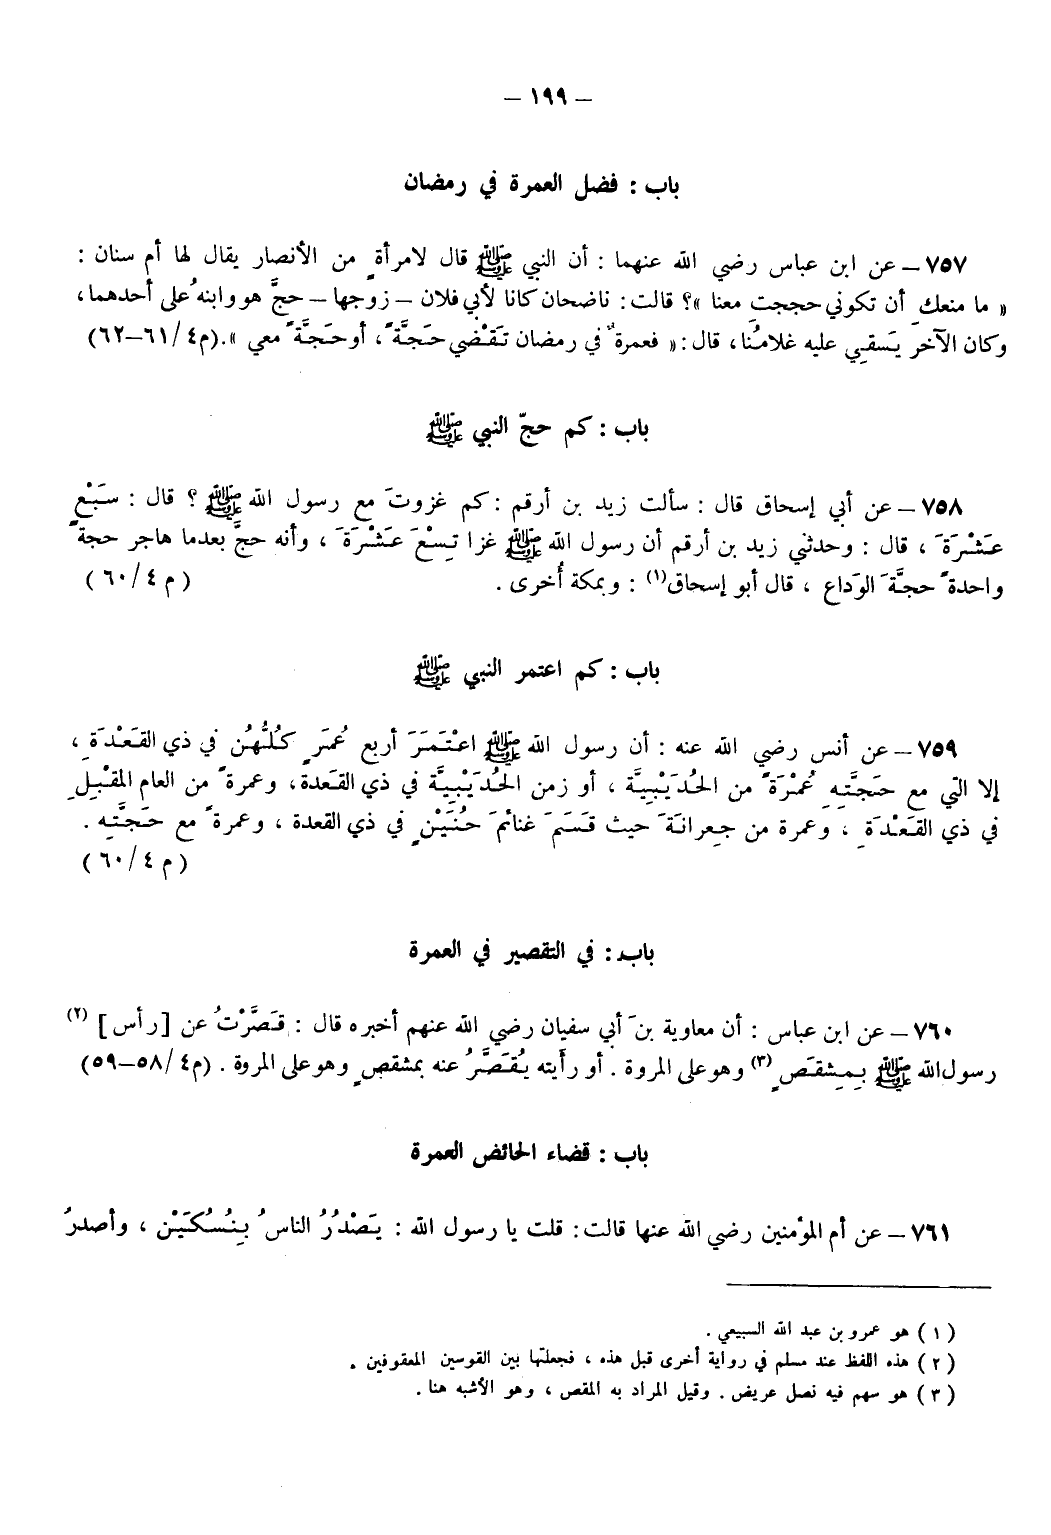 – ١٩٩ –
باب : فضل العمرة في رمضان
٧٥٧ – عن ابن عباس رضي الله عنهما : أن النبي ﷺ قال لامرأةٍ من الأنصار يقال لها أم سنان :
« ما منعكِ أن تكوني حججتِ معنا »؟ قالت : ناضحان كانا لأبي فلان – زوجها – حجَّ هو وابنهُ على أحدهما،
وكان الآخرَ يَسقي عليه غلامُنا، قال : « فعمرةٌ في رمضان تَقْضي حَجَّةً، أو حَجَّةً معي ». (م ٤/ ٦١–٦٢)
باب : كم حجّ النبي ﷺ
٧٥٨ – عن أبي إسحاق قال : سألت زيد بن أرقم : كم غزوتَ مع رسول الله ﷺ ؟ قال : سَبْعٍ
عَشْرَةَ ، قال : وحدثني زيد بن أرقم أن رسول الله ﷺ غزا تِسعْ عَشْرَةَ ، وأنه حجَّ بعدما هاجر حجةً
واحدةً حجَّةَ الوَداع ، قال أبو إسحاق(١) : وبمكة أُخرى . (م ٤/ ٦٠)
باب : كم اعتمر النبي ﷺ
٧٥٩ – عن أنس رضي الله عنه : أن رسول الله ﷺ اعْتَمَرَ أربع عُمَرٍ كلُّهُن في ذي القَعْدَةِ ،
إلا التي مع حَجَّتِهِ عُمْرَةً من الحُدَيْبِيَّة ، أو زمن الحُدَيْبِيَّة في ذي القَعدة، وعمرةً من العام المقْبِلِ
في ذي القَعْدَةِ ، وعمرة من جِعرانَةَ حيث قَسَمَ غنائمَ حُنَيْنٍ في ذي القعدة ، وعمرةً مع حَجَّتِه .
(م ٤/ ٦٠)
باب : في التقصير في العمرة
٧٦٠ – عن ابن عباس : أن معاوية بنَ أبي سفيان رضي الله عنهم أخبره قال : قَصَّرْتُ عن [رأس] (٢)
رسول الله ﷺ بِمِشقَصٍ (٣) وهو على المروة . أو رأَيته يُقَصَّرُ عنه بمشقصٍ وهو على المروة . (م ٤/ ٥٨–٥٩)
باب : قضاء الحائض العمرة
٧٦١ – عن أم المؤمنين رضي الله عنها قالت : قلت يا رسول الله : يَصْدُرُ الناسُ بِنُسُكَيْن ، وأصدرُ
(١) هو عمرو بن عبد الله السبيعي .
(٢) هذه اللفظ عند مسلم في رواية أخرى قبل هذه ، فجعلتها بين القوسين المعقوفين .
(٣) هو سهم فيه نصل عريض . وقيل المراد به المقص ، وهو الأشبه هنا .